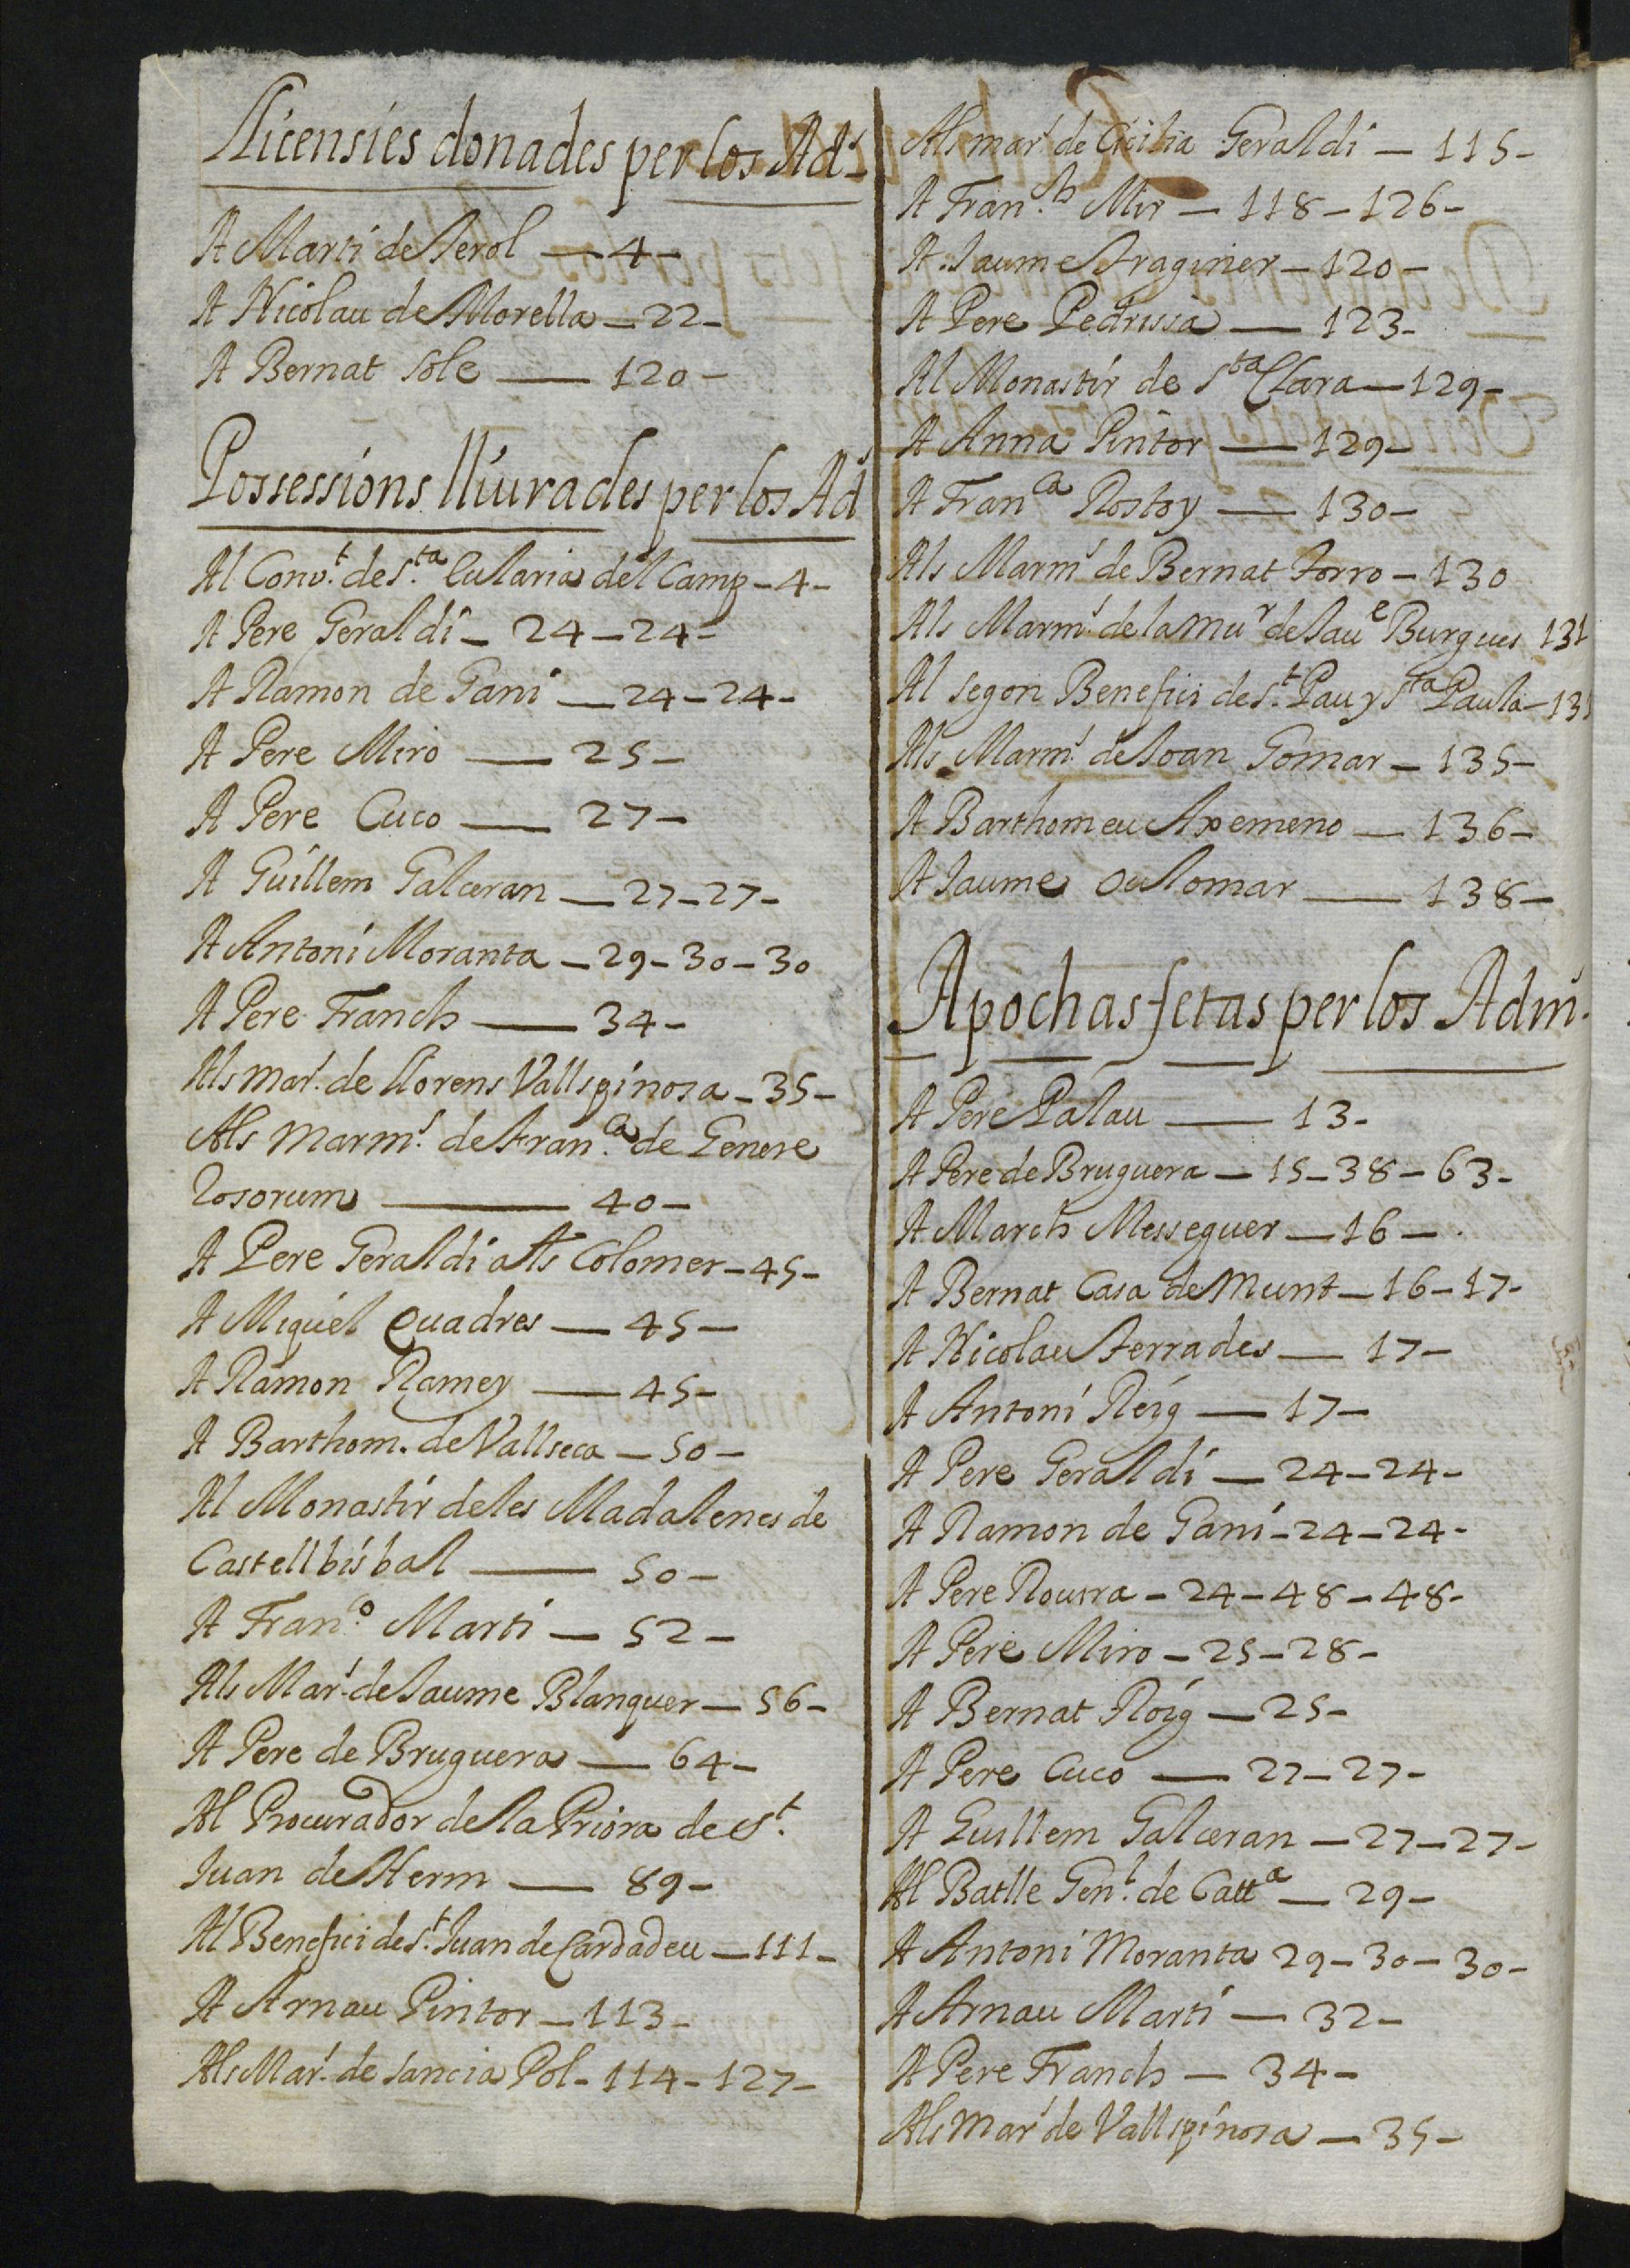 Llicensies donades per los Ads
A Marti de Serol — 4 –
A Nicolau de Morella — 22 –
A Bernat Sole — 120 –
Possessions lliurades per los Ads
Al Conv.t de S.ta Eularia del Camp – 4 –
A Pere Geraldi – 24 – 24 –
A Ramon de Gani — 24 – 24 –
A Pere Miro — 25 –
A Pere Cuco — 27 –
A Guillem Galceran — 27 – 27 –
A Antoni Moranta – 29 – 30 – 30
A Pere Franch — 34 –
Als mars. de Llorens Vallspinosa – 35 –
Als marms. de Fran.ca de Genere
Rosorum — 40 –
A Pere Geraldi als Colomer – 45 –
A Miquel Quadres — 45 –
A Ramon Ramey — 45 –
A Barthom. de Vallseca — 50 –
Al Monastir de les Madalenes de
Castellbisbal — 50 –
A Fran.co Marti — 52 –
Als Mars. de Jaume Blanquer — 56 –
A Pere de Bruguera — 64 –
Al Procurador de la Priora de S.t
Juan de Herm — 89 –
Al Benefici de S.t Juan de Cardadeu — 111 –
A Arnau Pintor — 113 –
Als Mars. de Sancia Pol – 114 – 127 –
Als mars de Cicilia Geraldi — 115 –
A Fran.ch Mir — 118 – 126 –
A Jaume Fraginer — 120 –
A Pere Pedrissa — 123 –
Al Monastir de Sta Clara — 129 –
A Anna Pintor — 129 –
A Fran.ca Rostoy — 130 –
Als Marms de Bernat Forro – 130
Als Marms de la mur de Jaue Burgues 131
Al segon Benefici de S.t Pau y Sta Paula – 131
Als Marms de Joan Gomar – 135 –
A Barthomeu Axemeno — 136 –
A Jaume Oulomar — 138 –
Apochas fetas per los Adm.
A Pere Palau — 13 –
A Pere de Bruguera — 15 – 38 – 63 –
A March Messeguer — 16 –
A Bernat Casa de Munt — 16 – 17 –
A Nicolau Ferrades — 17 –
A Antoni Reig — 17 –
A Pere Geraldi — 24 – 24 –
A Ramon de Gani – 24 – 24 –
A Pere Rourra – 24 – 48 – 48 –
A Pere Miro – 25 – 28 –
A Bernat Roig — 25 –
A Pere Cuco — 27 – 27 –
A Guillem Galceran — 27 – 27 –
Al Batlle Gen.l de Catta — 29 –
A Antoni Moranta 29 – 30 – 30 –
A Arnau Marti — 32 –
A Pere Franch — 34 –
Als mars de Vallspinosa — 35 –